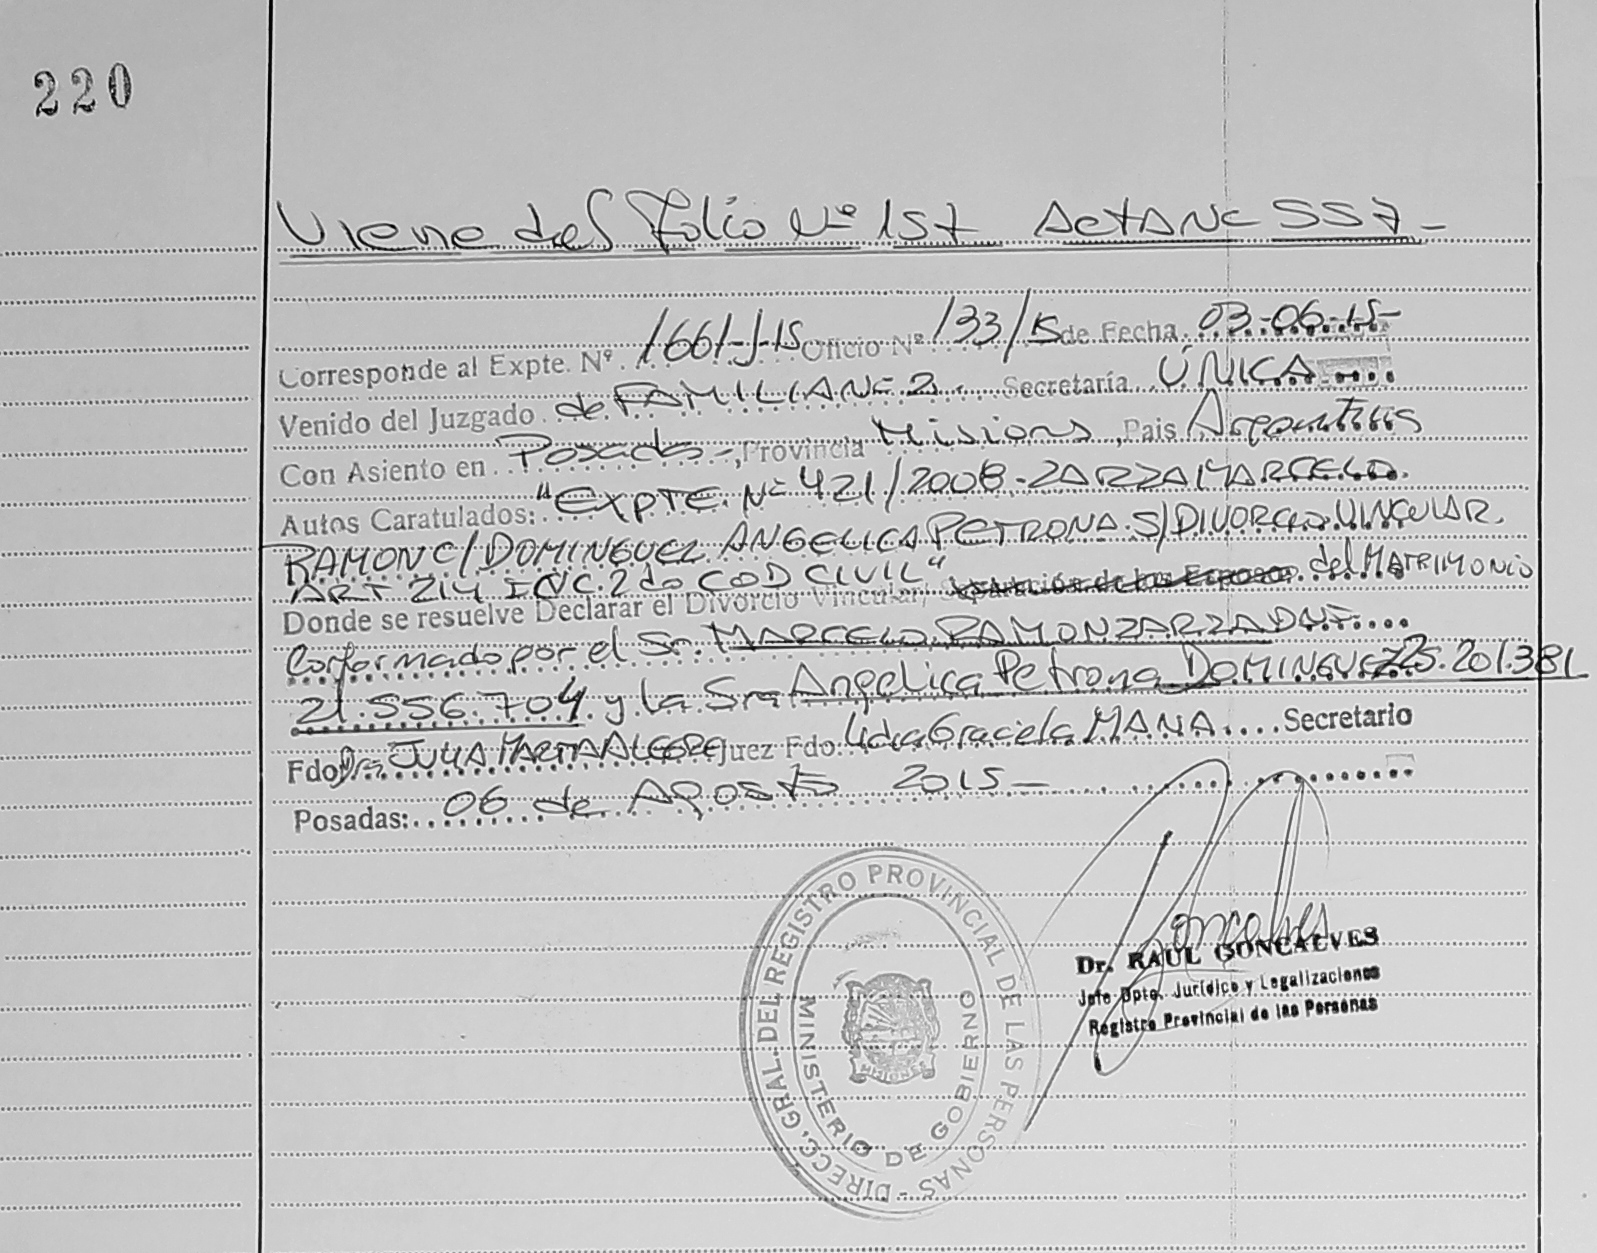 220
Viene del Folio Nº 157 Acta Nº 557-
Corresponde al Expte. Nº 1661-J-15 Oficio Nº 133/15 de Fecha 03-06-15-
Venido del Juzgado de FAMILIA Nº 2 Secretaría ÚNICA
Con Asiento en Posadas-, Provincia Misiones, Pais Argentina
Autos Caratulados: "EXPTE. Nº 421/2008-ZARZA MARCELO.
RAMON C/ DOMINGUEZ ANGELICA PETRONA S/ DIVORCIO VINCULAR.
ART 214 INC. 2do COD CIVIL"
Donde se resuelve Declarar el Divorcio Vincular, Separación de los Esposos del MATRIMONIO
Conformado por el Sr. MARCELO RAMON ZARZA DNI
21.556.704 y la Sra Angelica Petrona DOMINGUEZ 25.201.381
Fdo Dra. JULIA MARTA ALEGRE Juez Fdo: Lidia Graciela MANA Secretario
Posadas: 06 de Agosto 2015-
DIRECC. GRAL. DEL REGISTRO PROVINCIAL DE LAS PERSONAS -
MINISTERIO DE GOBIERNO
MISIONES
Goncalves
Dr. RAUL GONCALVES
Jefe Dpto. Jurídico y Legalizaciones
Registro Provincial de las Personas